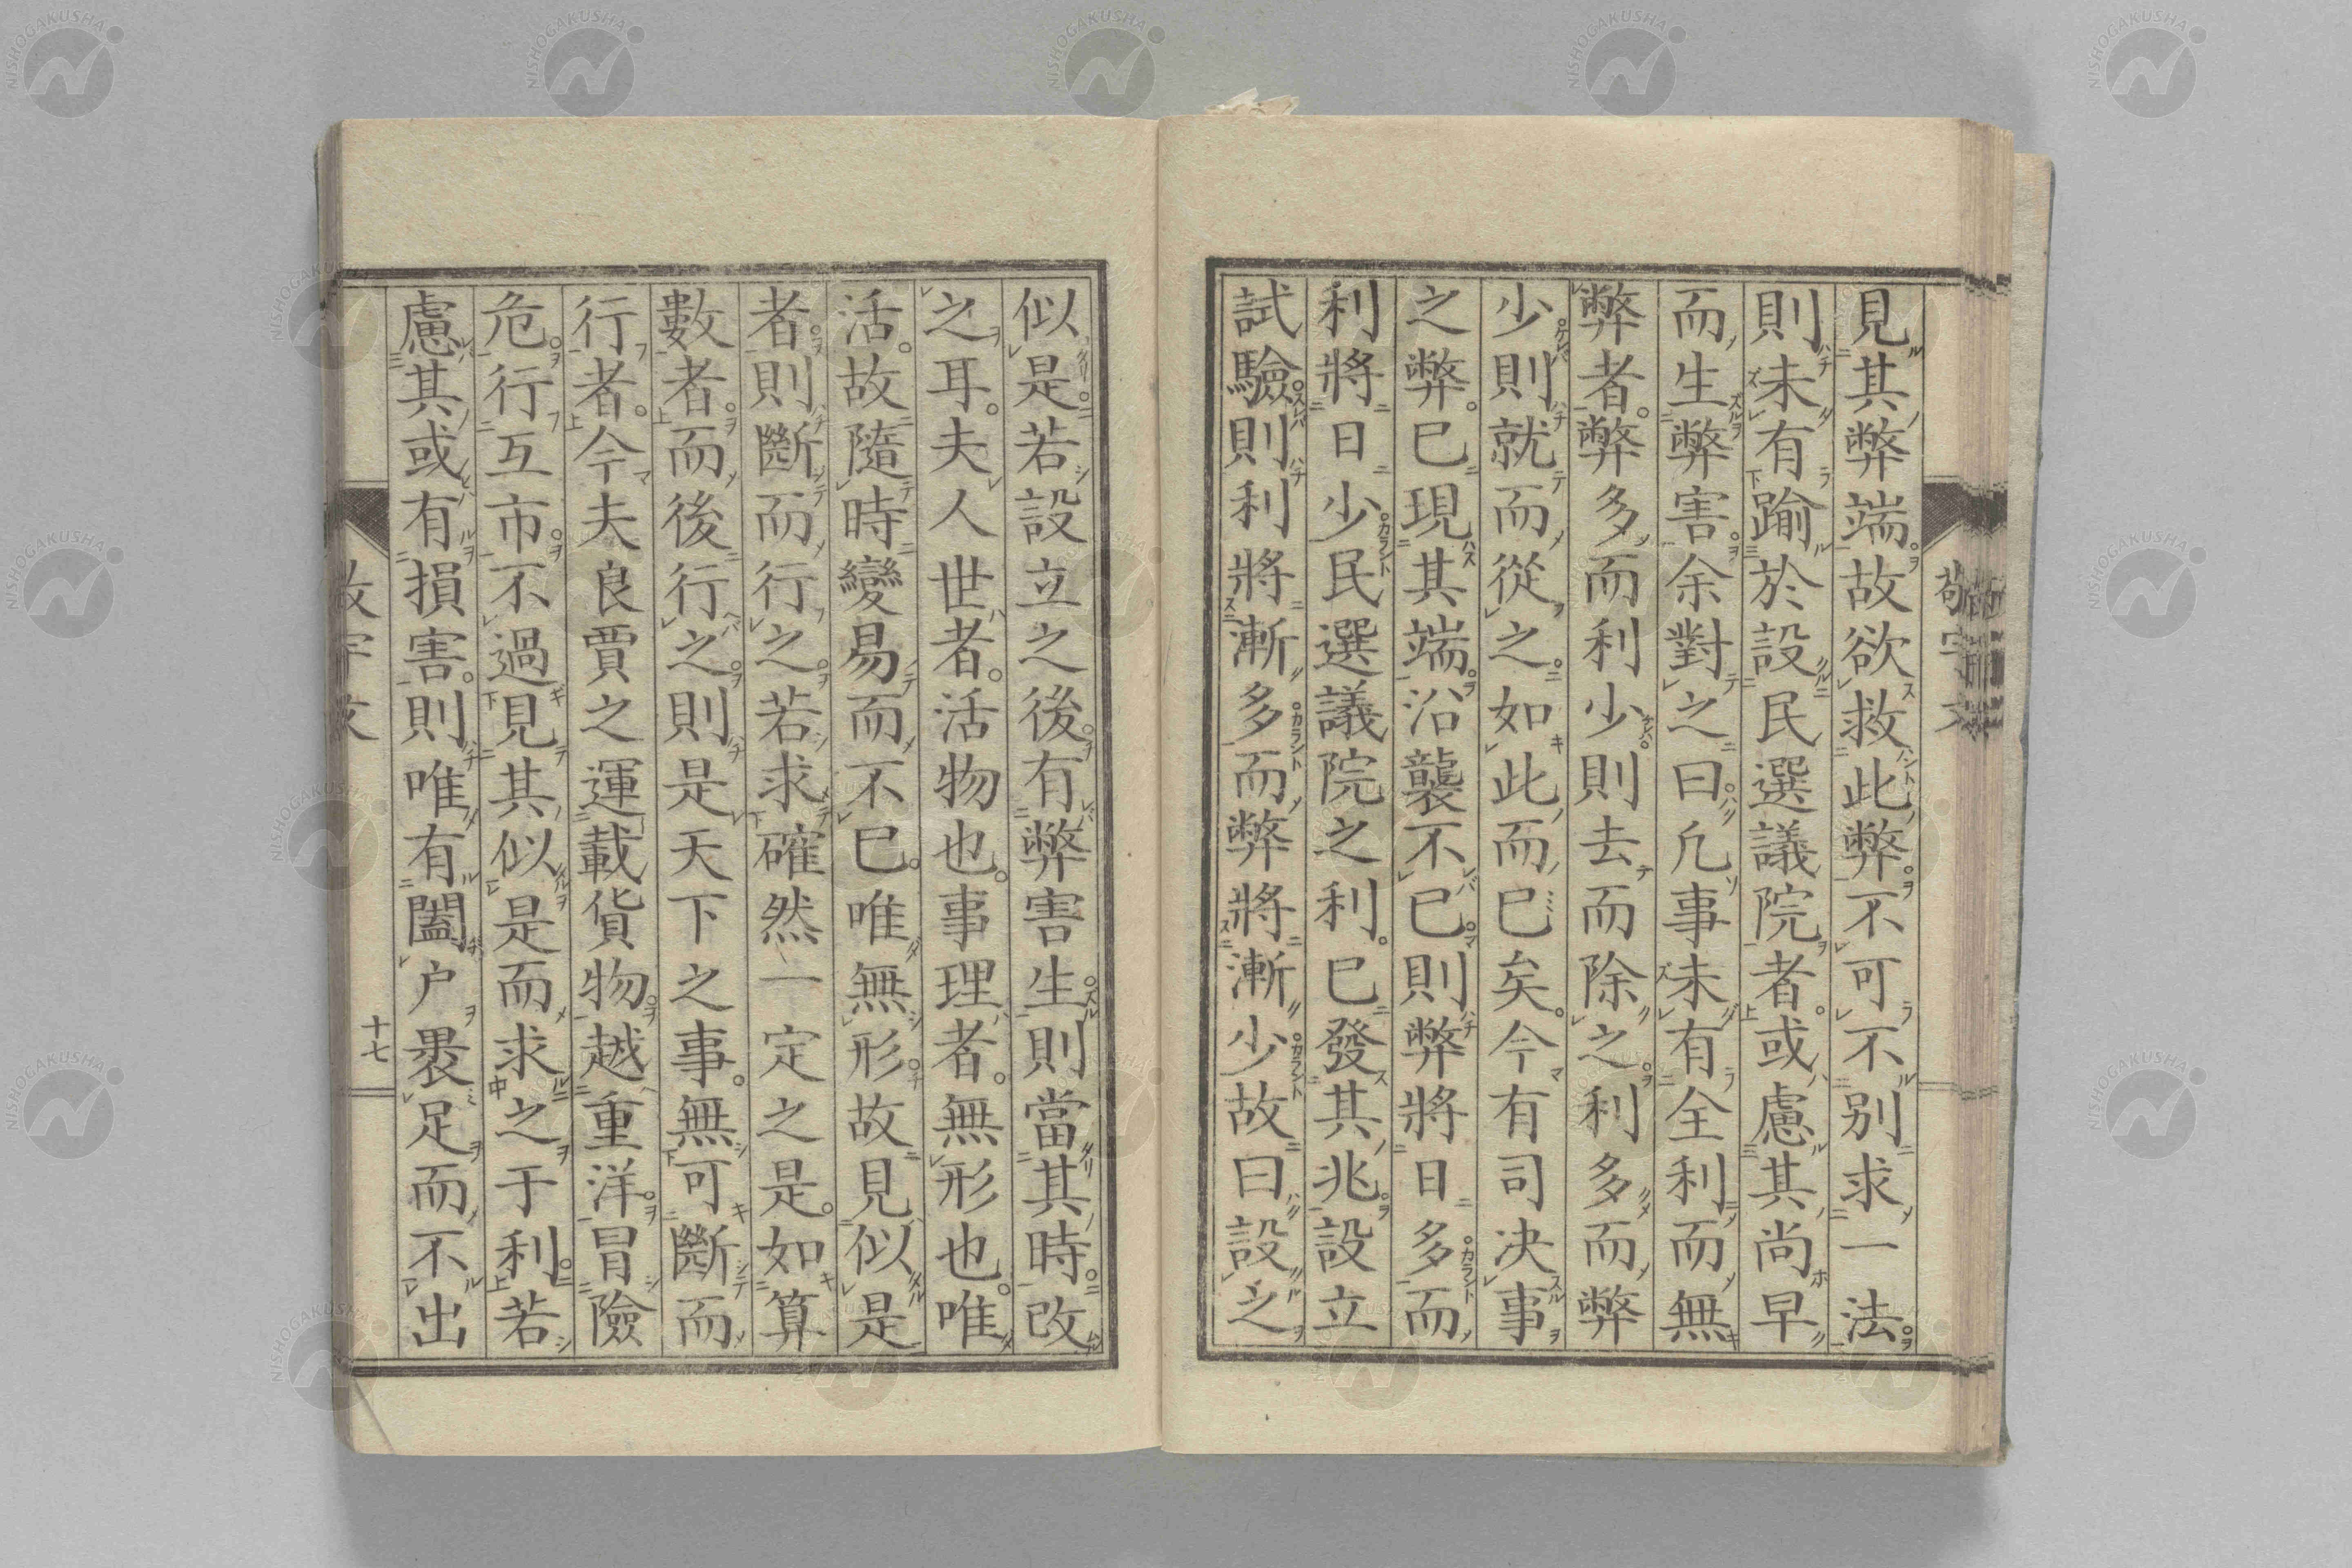 見其弊端故欲救此弊不可不別求一法
則未有踰於設民選議院者或慮其尚早
而生弊害余對之曰凢事未有全利而無
弊者弊多而利少則去而除之利多而弊
少則就而從之如此而已矣今有司决事
之弊已現其端沿襲不已則弊將日多而
利將日少民選議院之利已發其兆設立
試驗則利將漸多而弊將漸少故曰設之
似是若設立之後有弊害生則當其時改
之耳夫人世者活物也事理者無形也唯
活故隨時變易而不已唯無形故見似是
者則斷而行之若求確然一定之是如算
數者而後行之則是天下之事無可斷而
行者今夫良賈之運載貨物越重洋冒險
危行互市不過見其似是而求之于利若
慮其或有損害則唯有闔户褁足而不出
十七
NISHOGAKUSHA